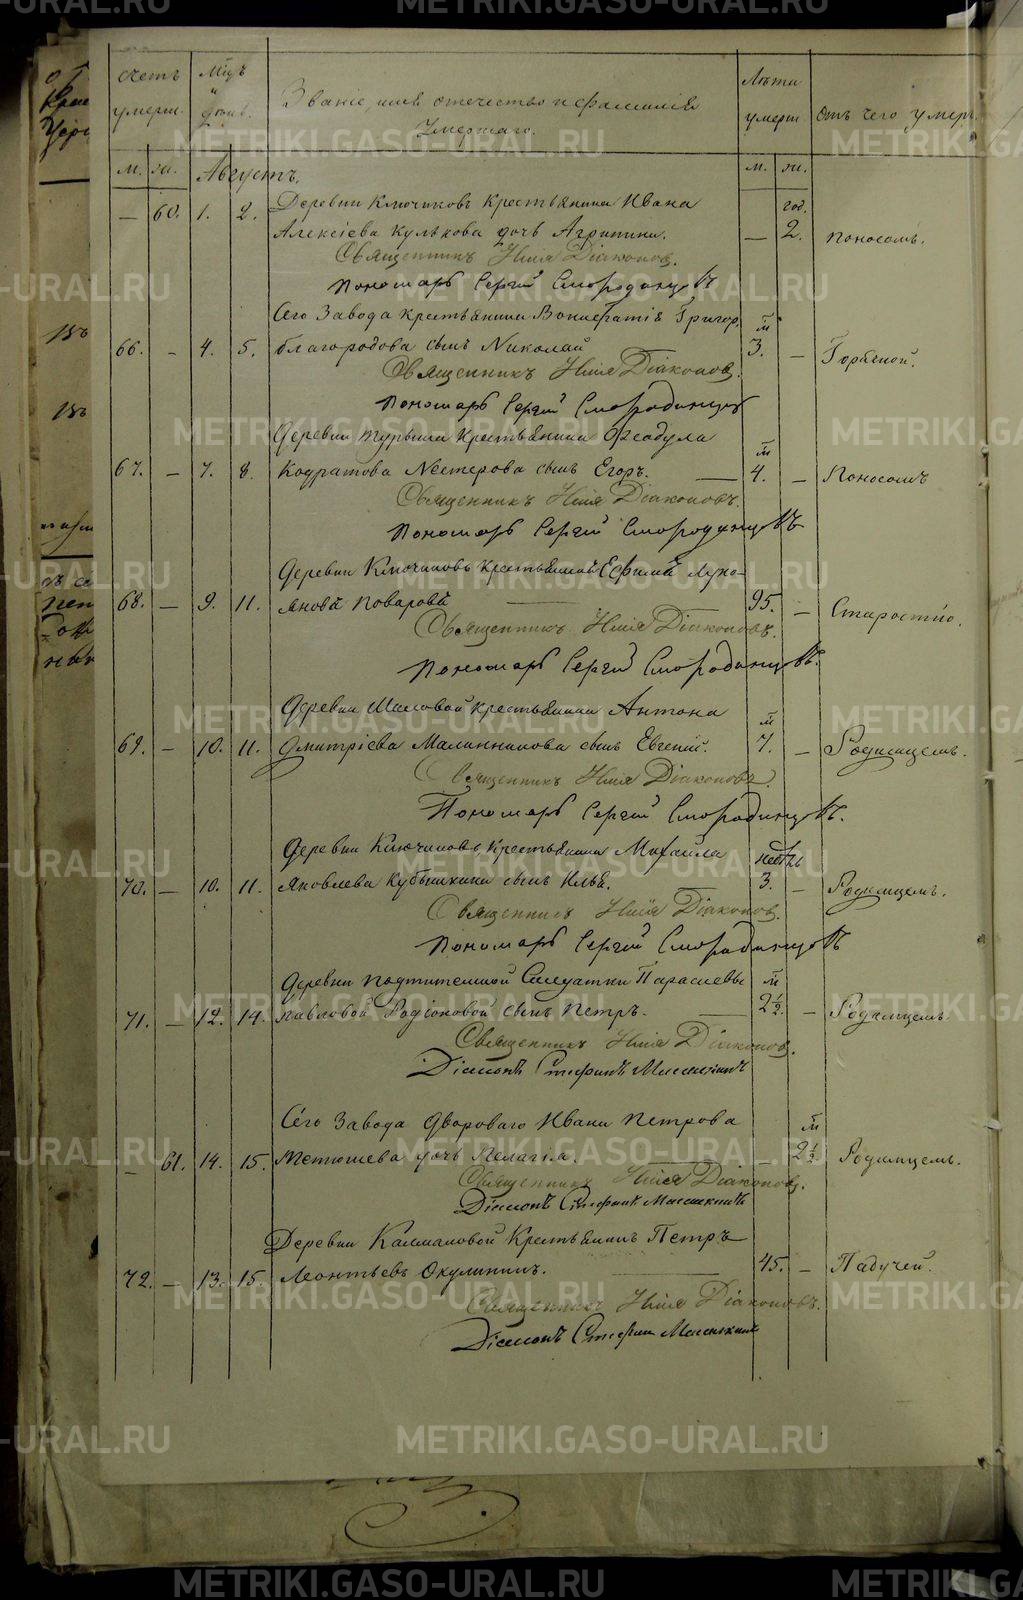 METRIKI.GASO-URAL.RU
счетъ умерш. Мѣц. и день. Званіе, имя отечество и фамилія умершаго. Лѣта умерш. Отъ чего умеръ.
м. ж. Августъ. м. ж.
Деревни Ключиковъ Крестьянина Ивана год.
— 60. 1. 2. Алексіева Кулькова дочь Агрипина. — 2. Поносомъ.
Священникъ Илія Діаконов.
Пономарь Сергій Смородинцовъ
Сего Завода Крестьянина Вонифатія Григор. м.
66. — 4. 5. Благородова сынъ Николай 3. — Горячкой.
Священникъ Илія Діаконов.
Пономарь Сергій Смородинцов
Деревни Турыша Крестьянина Ѳеодула м
67. — 7. 8. Кодратова Нестерова сынъ Егоръ. — 4. — Поносомъ
Священникъ Илія Діаконовъ.
Пономарь Сергій Смородинцовъ
Деревни Ключиковъ Крестьянинъ Ефимъ Луко-
68. — 9. 11. яновъ Поваровъ — 95. — Старостію.
Священникъ Илія Діаконовъ.
Пономарь Сергій Смородинцовъ.
Деревни Крестьянина Антона м
69. — 10. 11. Дмитріева Малинникова сынъ Евгеній. 7. — Родимцемъ.
Священникъ Илія Діаконовъ
Пономарь Сергій Смородинцовъ.
Деревни Ключиковъ Крестьянина Михаила нед.
70. — 10. 11. Яковлева Кубышкина сынъ Илья. 3. — Родимцемъ.
Священникъ Илія Діаконов.
Пономарь Сергій Смородинцовъ
Деревни Солдатки Параскевы м
71. — 12. 14. Павловой Родіоновой сынъ Петръ. — 2½. — Родимцемъ.
Священникъ Илія Діаконов.
Діаконъ Стефанъ
Сего Завода Двороваго Ивана Петрова м
— 61. 14. 15. Метюшева дочь Пелагія. — 2½ Родимцемъ.
Священникъ Илія Діаконовъ.
Діаконъ Стефанъ
Деревни Калмаковой Крестьянинъ Петръ
72. — 13. 15. Леонтьевъ Окулининъ. — 45. — Падучей.
Священникъ Илія Діаконовъ.
Діаконъ Стефанъ